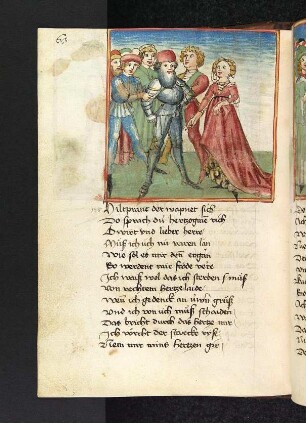 63
Hiltprant der wapnet sich
Do sprach diu hertzogine rich
Ewirt vnd lieber herre
Müß ich üch nu varen lan
Wie sol es mir denn ergan
So werdent mir fröde verre
Ich waiß wol das ich sterben muß
Von rechtem hertzelaide
Wenn ich gedenk an üwern grüß
Und ich von üch müß schaiden
Das bricht durch das hertze mir
Ich vörcht der starcke ryse
Niem mir mins hertzen gir